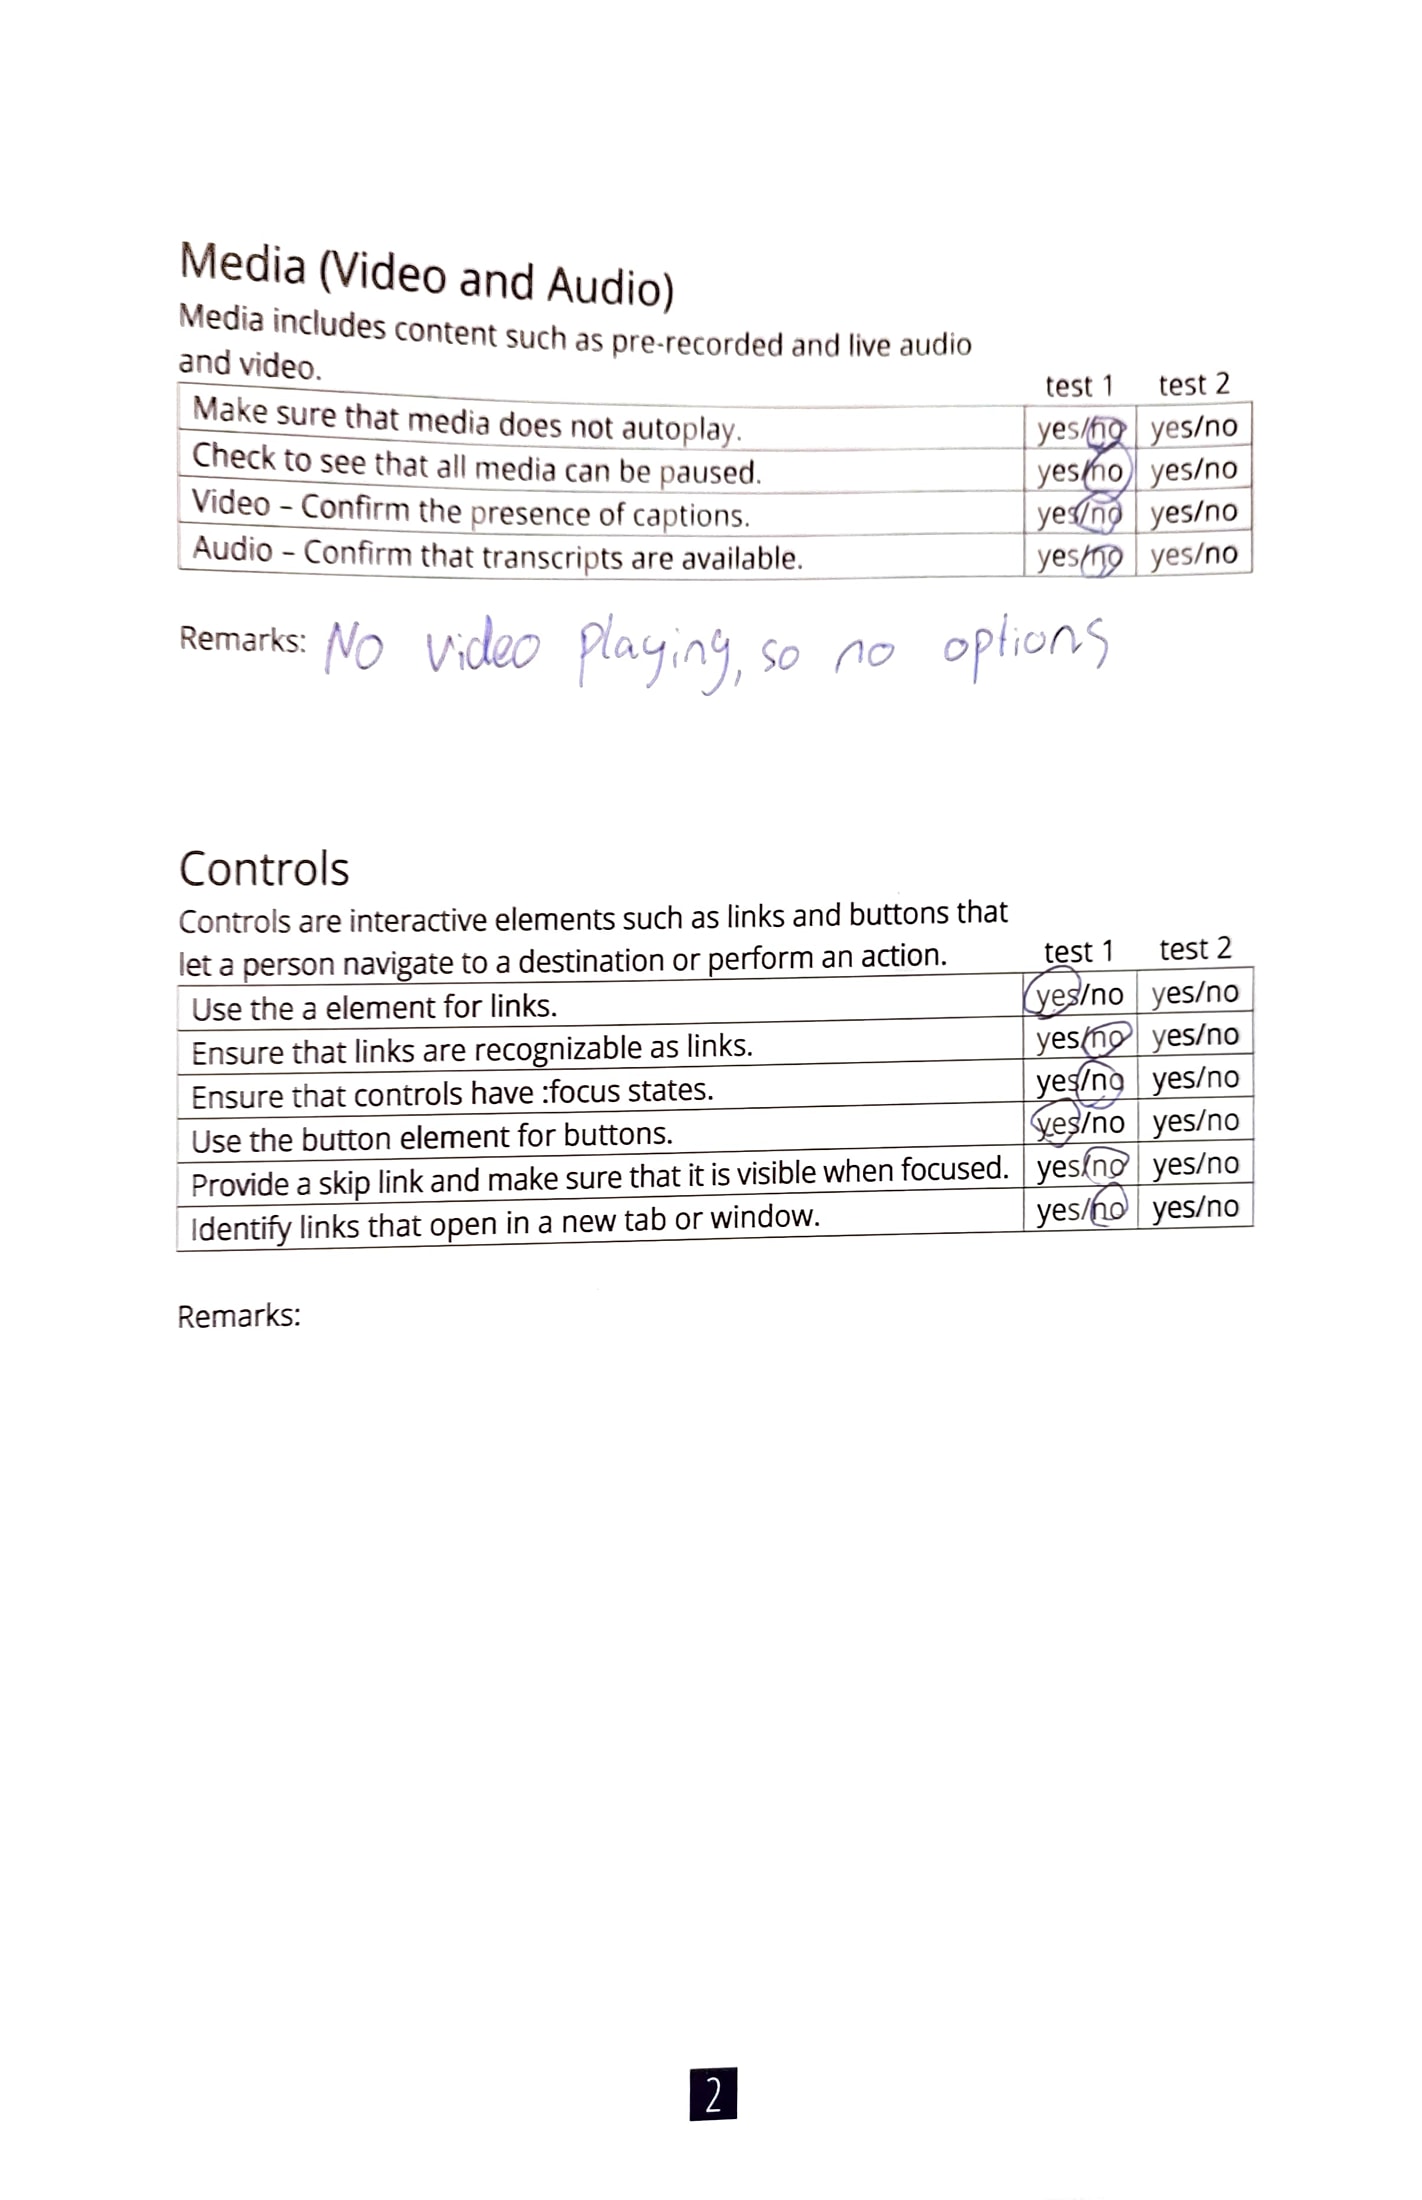 Media (Video and Audio)
Media includes content such as pre-recorded and live audio
and video.
test 1 test 2
Make sure that media does not autoplay. yes/no yes/no
Check to see that all media can be paused. yes/no yes/no
Video – Confirm the presence of captions. yes/no yes/no
Audio – Confirm that transcripts are available. yes/no yes/no
Remarks: No video playing, so no options
Controls
Controls are interactive elements such as links and buttons that
let a person navigate to a destination or perform an action.
test 1 test 2
Use the a element for links. yes/no yes/no
Ensure that links are recognizable as links. yes/no yes/no
Ensure that controls have :focus states. yes/no yes/no
Use the button element for buttons. yes/no yes/no
Provide a skip link and make sure that it is visible when focused. yes/no yes/no
Identify links that open in a new tab or window. yes/no yes/no
Remarks:
2